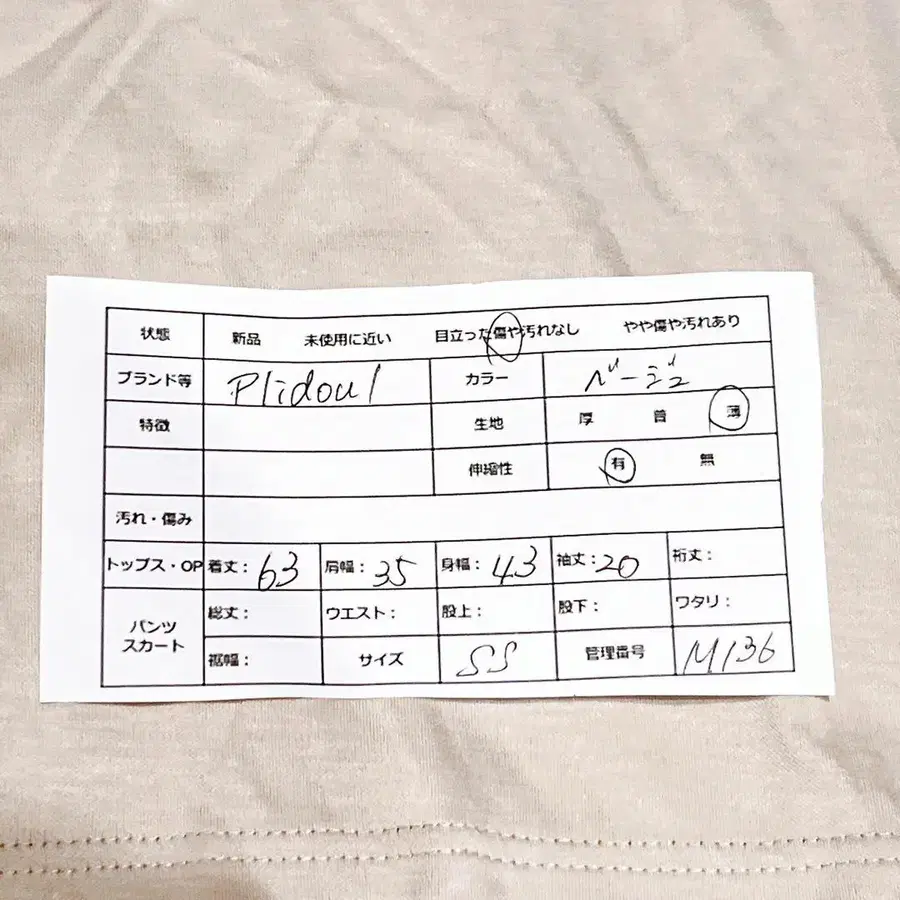 状態 新品 未使用に近い 目立った傷や汚れなし やや傷や汚れあり
ブランド等 Plidoul カラー ベージュ
特徴 生地 厚 普 薄
伸縮性 有 無
汚れ・傷み
トップス・OP 着丈：63 肩幅：35 身幅：43 袖丈：20 裄丈：
パンツ スカート 総丈： ウエスト： 股上： 股下： ワタリ：
裾幅： サイズ SS 管理番号 M136